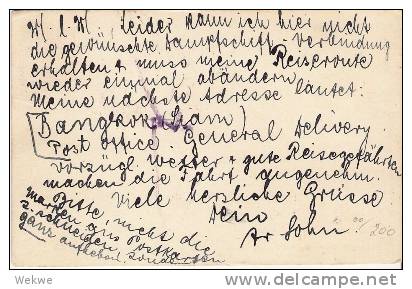 M. l. M. Leider kann ich hier nicht
die gewünschte Dampfschiff-Verbindung
erhalten & muss meine Reiseroute
wieder einmal abändern
Meine nächste Adresse lautet:
Bangkok (Siam)
Post Office General Delivery.
Vorzügl. Wetter & gute Reisegefährten
machen die Fahrt angenehm.
Viele herzliche Grüsse
Dein
Sohn
Bitte, nicht die
Marken aus Postkarten
z. schneiden
ganz aufheben
200
Wekwe
delcampe.net